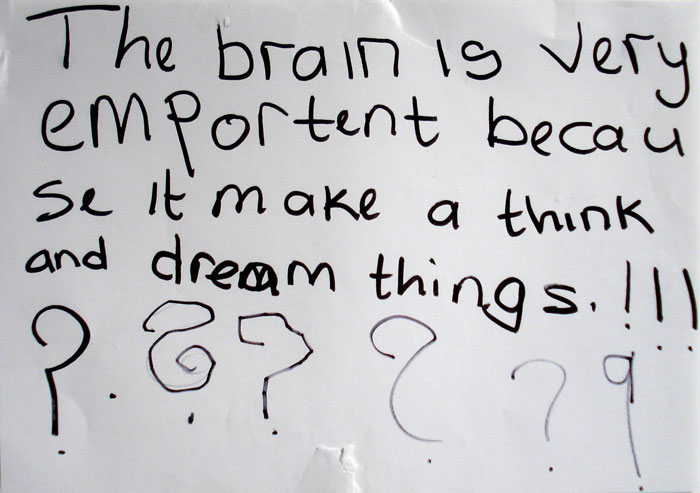 The brain is very
emportent becau
se it make a think
and dream things.!!!
? . ? ? ? ? ?